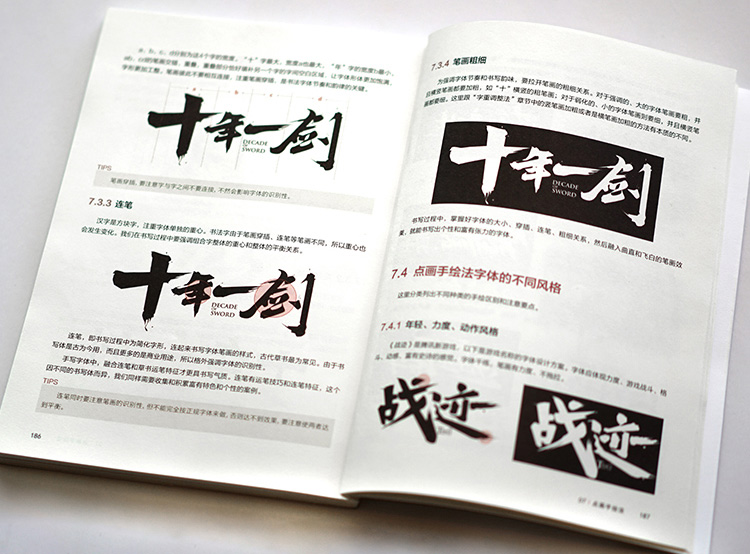 a、b、c、d分别为这4个字的宽度。"十"字最大，宽度a也最大，"年"字的宽度b最小，
ab、cd的笔画穿插、重叠，重叠部分恰好填补另一个字的字间空白区域，让字体形体更加饱满，
字形更加工整。笔画彼此不要相互连接，注重笔画穿插，是书法字体节奏和韵律的关键。
a b c d
十年一剑
DECADE
OF
SWORD
TIPS
笔画穿插，要注意字与字之间不要连接，不然会影响字体的识别性。
7.3.3 连笔
汉字是方块字，注重字体单独的重心。书法字由于笔画穿插、连笔等笔画不同，所以重心也
会发生变化。我们在书写过程中要强调组合字整体的重心和整体的平衡关系。
十年一剑
DECADE
OF
SWORD
连笔，即书写过程中为简化字形，连起来书写字体笔画的样式，古代草书最为常见。由于书
写体是古为今用，而且更多的是商业用途，所以格外强调字体的识别性。
手写字体中，融合连笔和草书运笔特征才更具书写气质。连笔有运笔技巧和连笔特征，这个
因不同的书写体而异，我们同样需要收集和积累富有特色和个性的案例。
TIPS
连笔同时要注意笔画的识别性，但不能完全按正楷字体来做，否则达不到效果，要注意使两者达
到平衡。
186
7.3.4 笔画粗细
为强调字体节奏和书写韵味，要拉开笔画的粗细关系。对于强调的、大的字体笔画要粗，并
且横竖笔画都要加粗，如"十"横竖的粗笔画；对于弱化的、小的字体笔画则要细，并且横竖笔
画都要细。这里跟"字重调整法"章节中的竖笔画加粗或者是横笔画加粗的方法有本质的不同。
十年一剑
DECADE
OF
SWORD
书写过程中，掌握好字体的大小、穿插、连笔、粗细关系，然后融入曲直和飞白的笔画效
果，就能书写出个性和富有张力的字体。
7.4 点画手绘法字体的不同风格
这里分类列出不同种类的手绘区别和注意要点。
7.4.1 年轻、力度、动作风格
《战迹》是腾讯新游戏，以下是游戏名称的字体设计方案，字体应体现力度、游戏战斗、格
斗、动感，富有史诗的感觉。字体干练，笔画有力度、不拖拉。
战迹
战迹
07｜点画手绘法
187